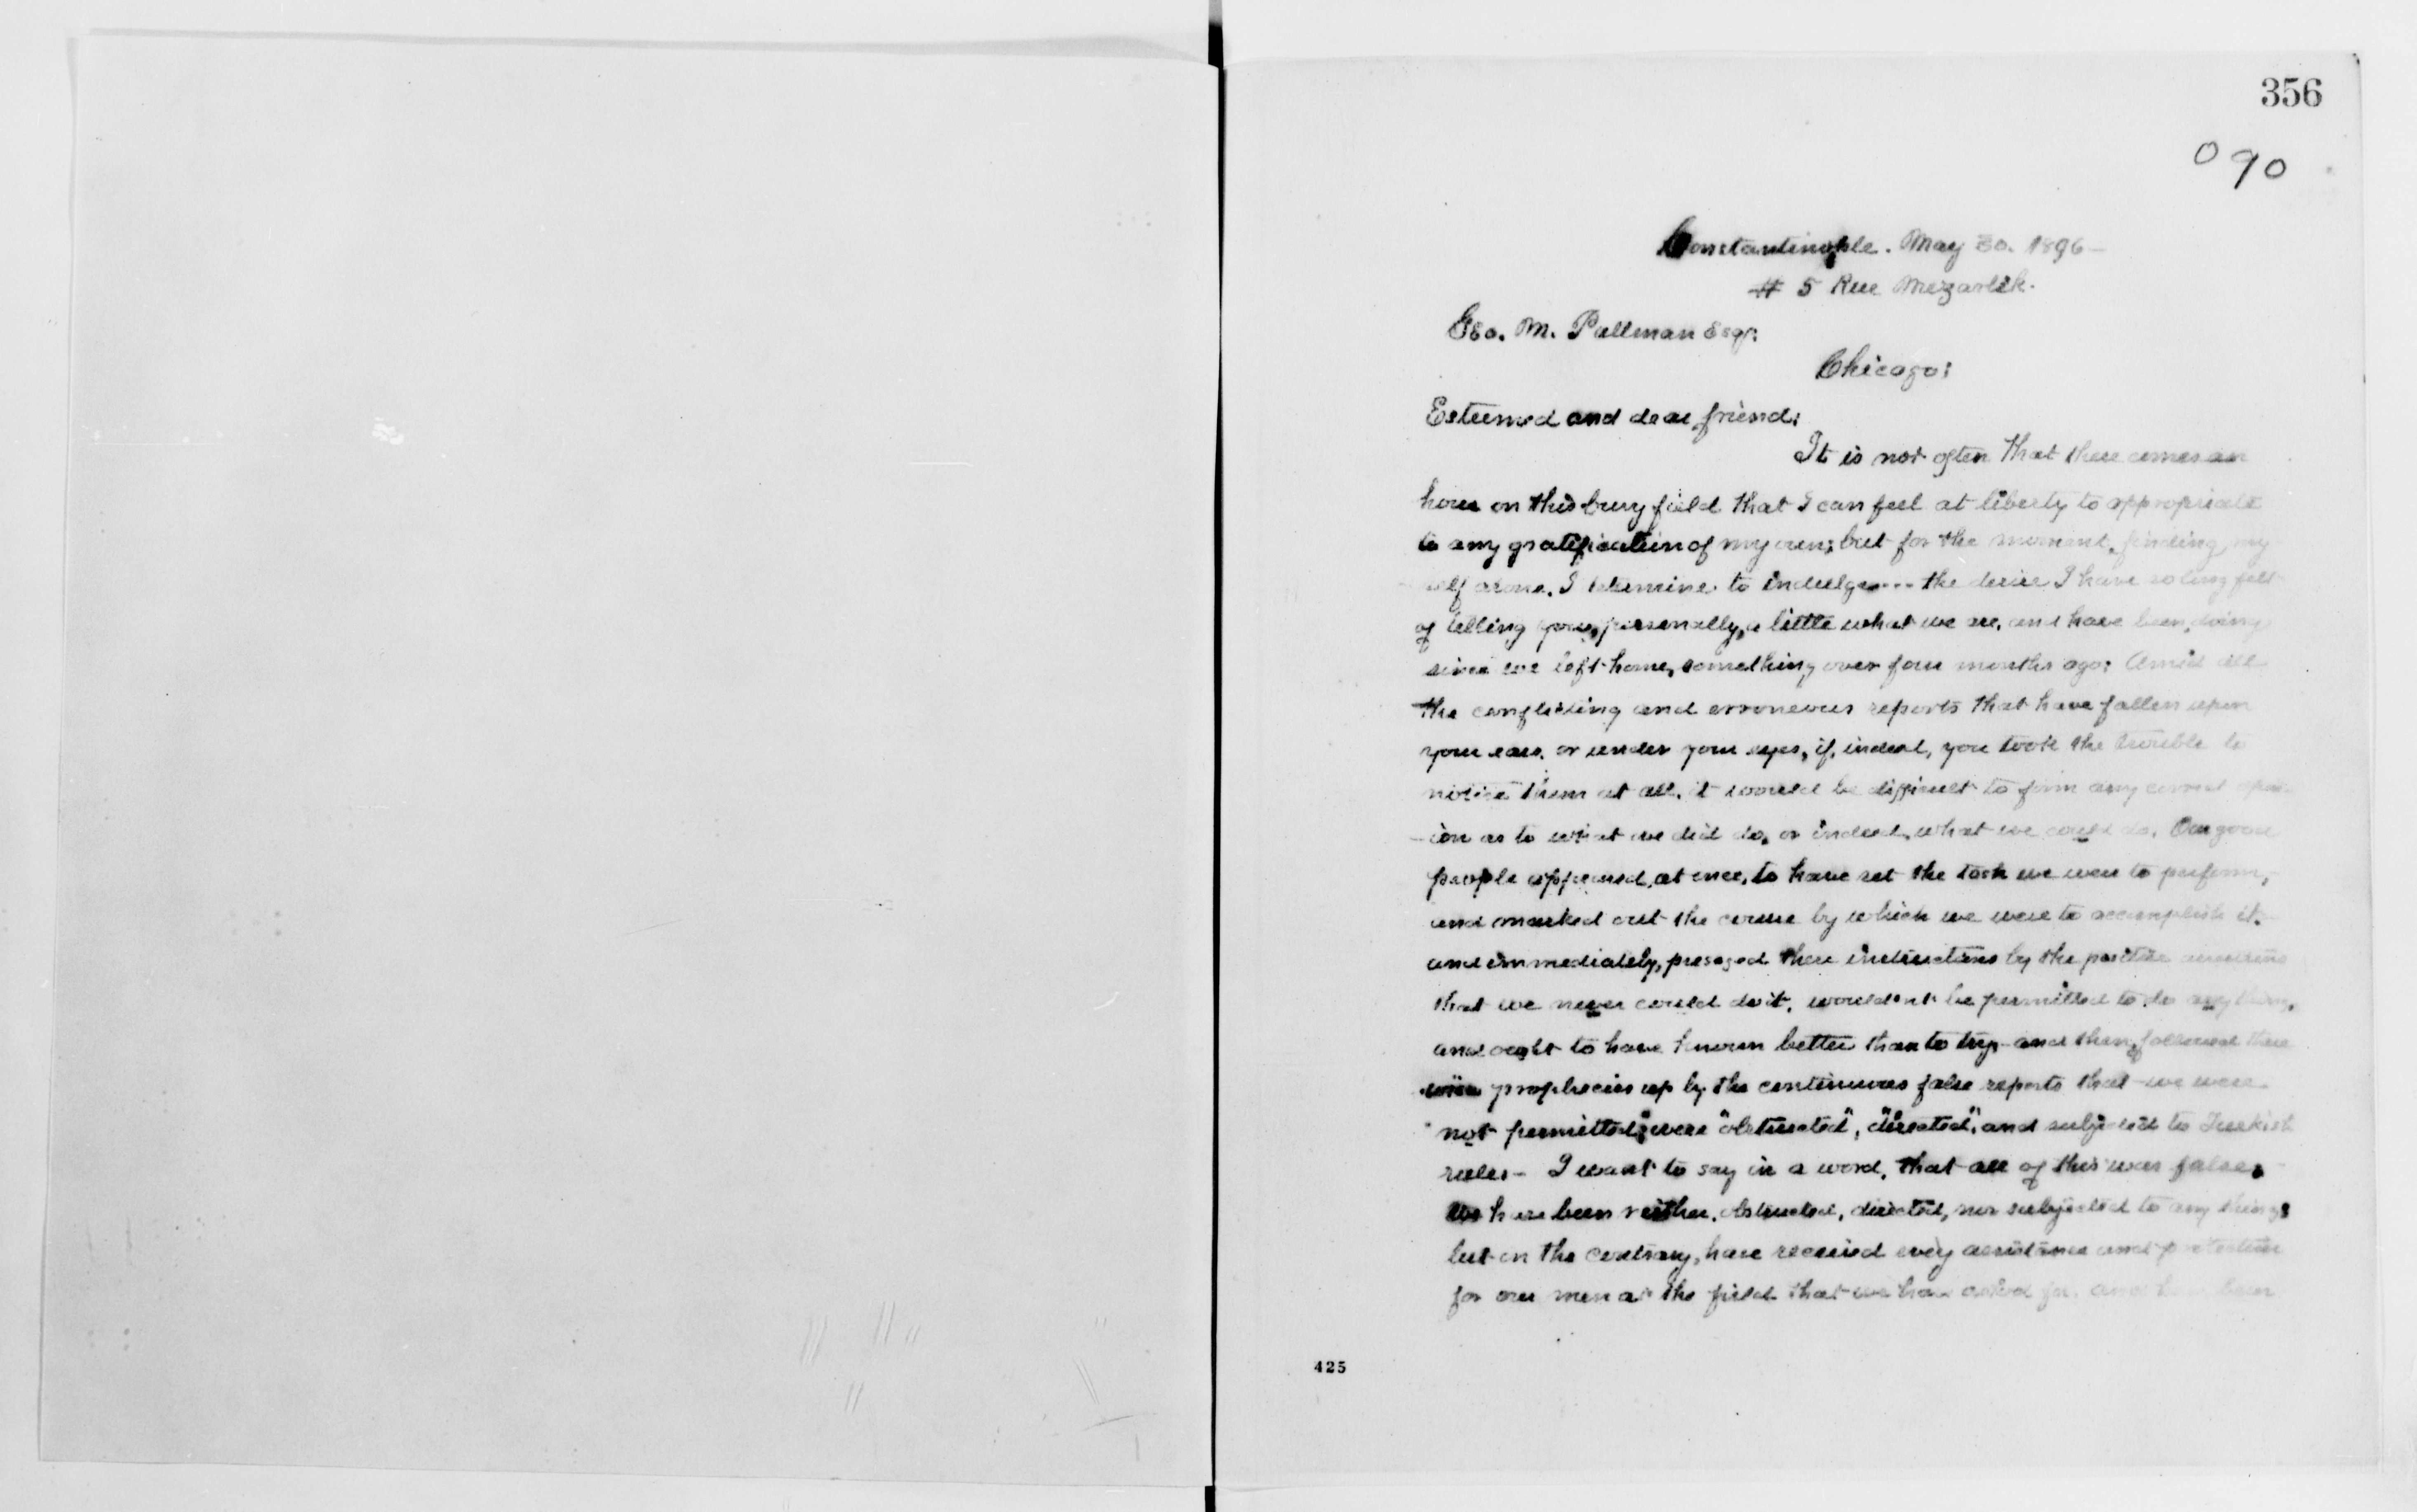 356
090
Constantinople. May 30. 1896-
# 5 Rue Mezarlik.
Geo. M. Pullman Esqr:
Chicago:
Esteemed and dear friend:
It is not often that there comes an
hour on this busy field that I can feel at liberty to appropriate
to any gratification of my own; but for the moment, finding my
self alone, I determine to indulge --- the desire I have so long felt
of telling you, personally, a little what we are, and have been, doing
since we left home, something over four months ago: Amid all
the conflicting and erroneous reports that have fallen upon
your ears, or under your eyes, if, indeed, you took the trouble to
notice them at all, it would be difficult to form any correct opin-
-ion as to what we did do, or indeed, what we could do. Our good
people appeared, at once, to have set the task we were to perform,
and marked out the course by which we were to accomplish it.
and immediately, presaged these instructions by the positive assertions
that we never could do it, wouldn't be permitted to do anything,
and ought to have known better than to try - and then, followed these
wise prophecies up by the continuous false reports that we were
"not permitted", were "obstructed", "directed", and subjected to Turkish
rules - I want to say in a word, that all of this was false,
We have been neither, obstructed, directed, nor subjected to any thing;
but on the contrary, have received every assistance and protection
for our men at the field that we have asked for, and have been
425